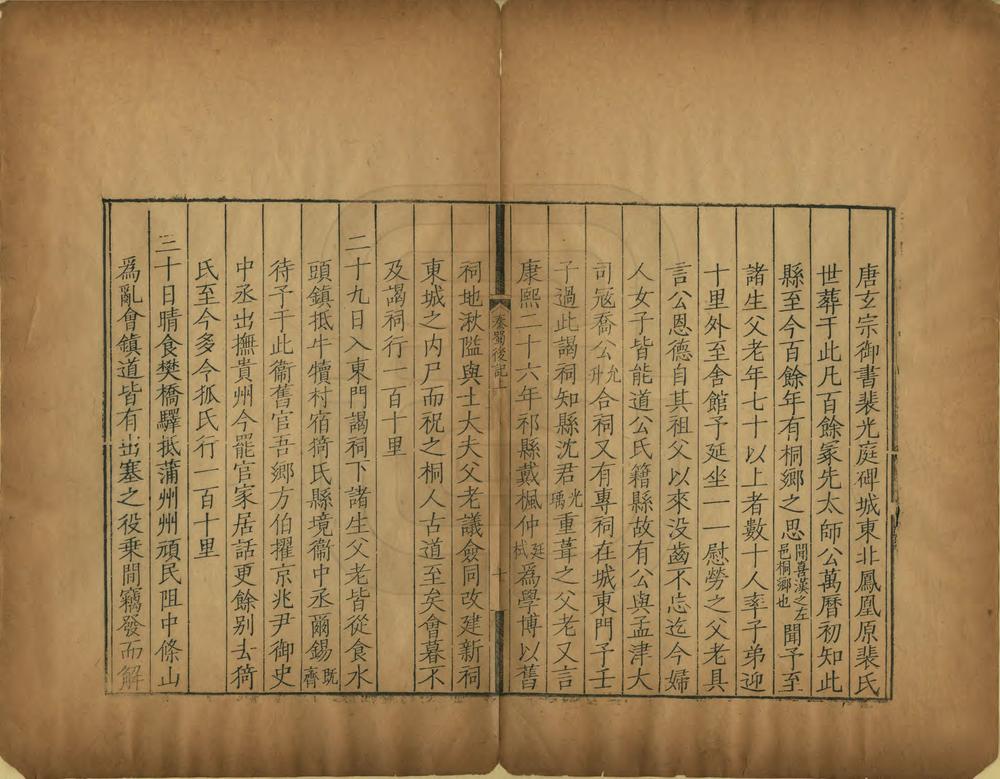 唐玄宗御書裴光庭碑城東北鳳凰原裴氏
世葬于此凡百餘冡先太師公萬曆初知此
縣至今百餘年有桐鄉之思聞喜漢之左邑桐鄉也聞予至
諸生父老年七十以上者數十人率子弟迎
十里外至舍館予延坐一一慰勞之父老具
言公恩德自其祖父以來没齒不忘迄今婦
人女子皆能道公氏籍縣故有公與孟津大
司冦喬公允升合祠又有專祠在城東門予壬
子過此謁祠知縣沈君光瑀重葺之父老又言
康熙二十六年祁縣戴楓仲廷栻爲學博以舊
秦蜀後記上
十
祠地湫隘與士大夫父老議僉同改建新祠
東城之内尸而祝之桐人古道至矣會暮不
及謁祠行一百十里
二十九日入東門謁祠下諸生父老皆從食水
頭鎮抵牛犢村宿猗氏縣境衞中丞爾錫既齊
待予于此衞舊官吾鄉方伯擢京兆尹御史
中丞出撫貴州今罷官家居話更餘别去猗
氏至今多令狐氏行一百十里
三十日晴食樊橋驛抵蒲州州頑民阻中條山
爲亂會鎮道皆有出塞之役乗間竊發而解